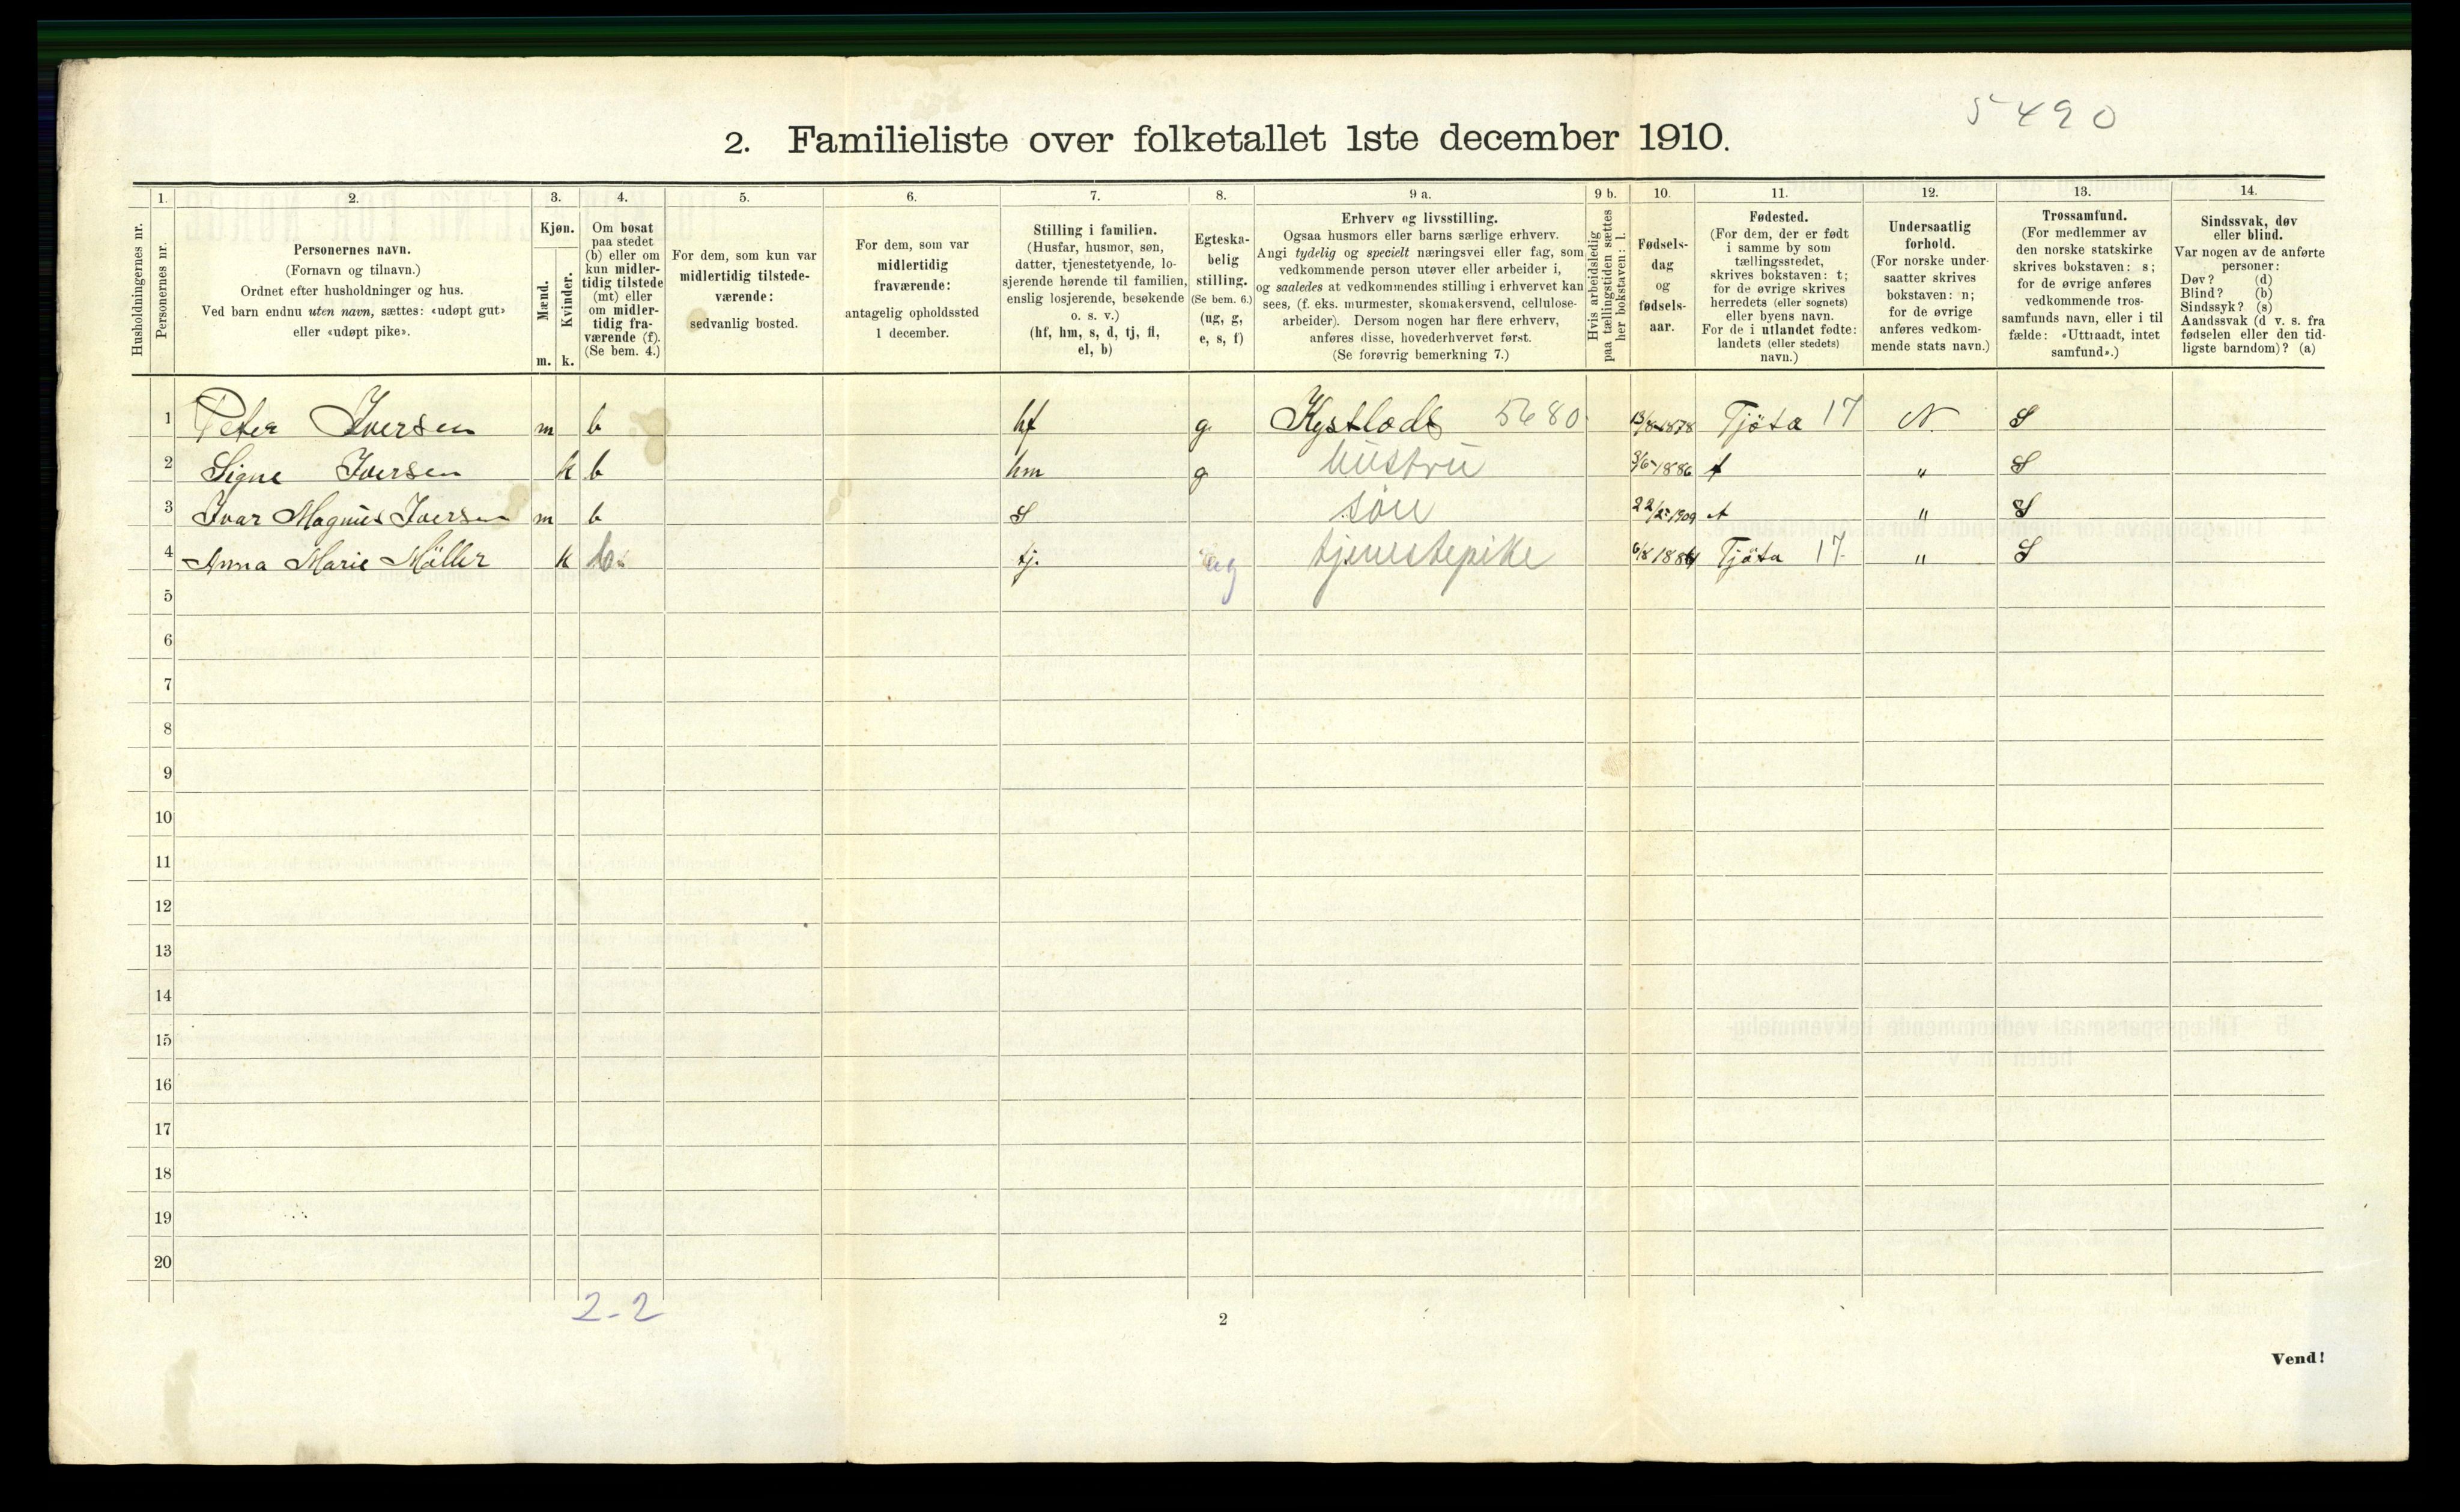 5490
2. Familieliste over folketallet 1ste december 1910.
Husholdningernes nr.
1.
Personernes nr.
2.
Personernes navn.
(Fornavn og tilnavn.)
Ordnet efter husholdninger og hus.
Ved barn endnu uten navn, sættes: «udøpt gut»
eller «udøpt pike».
3.
Kjøn.
Mænd.
Kvinder.
m. k.
4.
Om bosat
paa stedet
(b) eller om
kun midler-
tidig tilstede
(mt) eller
om midler-
tidig fra-
værende (f).
(Se bem. 4.)
5.
For dem, som kun var
midlertidig tilstede-
værende:
sedvanlig bosted.
6.
For dem, som var
midlertidig
fraværende:
antagelig opholdssted
1 december.
7.
Stilling i familien.
(Husfar, husmor, søn,
datter, tjenestetyende, lo-
sjerende hørende til familien,
enslig losjerende, besøkende
o. s. v.)
(hf, hm, s, d, tj, fl,
el, b)
8.
Egteska-
belig
stilling.
(Se bem. 6.)
(ug, g,
e, s, f)
9 a.
Erhverv og livsstilling.
Ogsaa husmors eller barns særlige erhverv.
Angi tydelig og specielt næringsvei eller fag, som
vedkommende person utøver eller arbeider i,
og saaledes at vedkommendes stilling i erhvervet kan
sees, (f. eks. murmester, skomakersvend, cellulose-
arbeider). Dersom nogen har flere erhverv,
anføres disse, hovederhvervet først.
(Se forøvrig bemerkning 7.)
9 b.
Hvis arbeidsledig
paa tællingstiden sættes
her bokstaven: l.
10.
Fødsels-
dag
og
fødsels-
aar.
11.
Fødested.
(For dem, der er født
i samme by som
tællingsstedet,
skrives bokstaven: t;
for de øvrige skrives
herredets (eller sognets)
eller byens navn.
For de i utlandet fødte:
landets (eller stedets)
navn.)
12.
Undersaatlig
forhold.
(For norske under-
saatter skrives
bokstaven: n;
for de øvrige
anføres vedkom-
mende stats navn.)
13.
Trossamfund.
(For medlemmer av
den norske statskirke
skrives bokstaven: s;
for de øvrige anføres
vedkommende tros-
samfunds navn, eller i til
fælde: «Uttraadt, intet
samfund».)
14.
Sindssvak, døv
eller blind.
Var nogen av de anførte
personer:
Døv? (d)
Blind? (b)
Sindssyk? (s)
Aandssvak (d v. s. fra
fødselen eller den tid-
ligste barndom)? (a)
1 Peter Iversen m b hf g. Kystlods 5680 13/8-1878 Tjöta 17 N. S
2 Signe Iversen k b hm g hustru 3/6-1886 t " S
3 Ivar Magnus Iversen m b S søn 1909 t " S
4 Anna Marie Möller k b tj. ug tjenestepike 6/8 1884 Tjöta 17 " S
5
6
7
8
9
10
11
12
13
14
15
16
17
18
19
20
2-2
2
Vend!